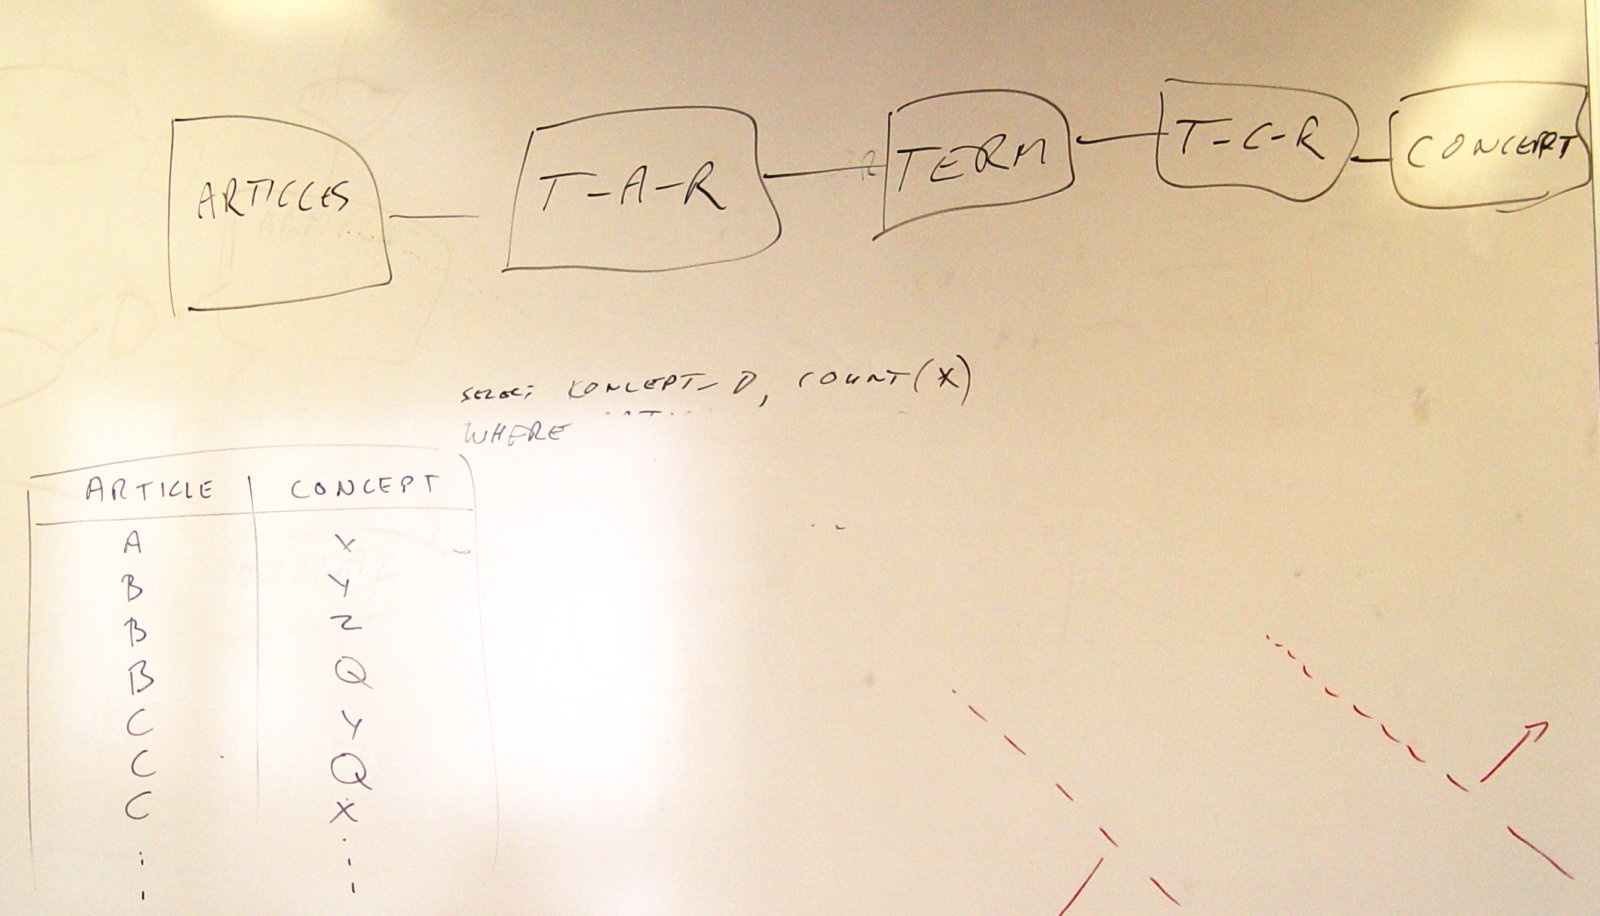 ARTICLES T-A-R TERM T-C-R CONCEPT
SELECT CONCEPT_ID, COUNT(X)
WHERE
ARTICLE CONCEPT
A X
B Y
B Z
B Q
C Y
C Q
C X